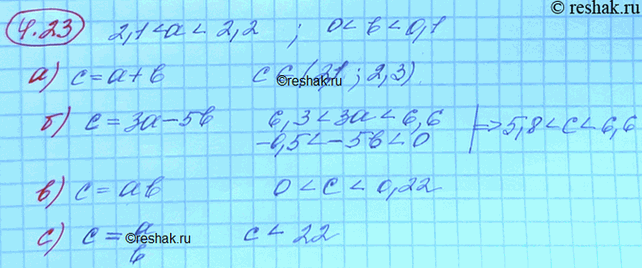 reshak.ru
4.23 2,1 < a < 2,2 ; 0 < b < 0,1
а) c = a + b c ∈ (2,1 ; 2,3)
reshak.ru
б) c = 3a − 5b 6,3 < 3a < 6,6
−0,5 < −5b < 0 | ⇒ 5,8 < c < 6,6
в) c = ab 0 < c < 0,22
с) c = a/b c < 22
reshak.ru